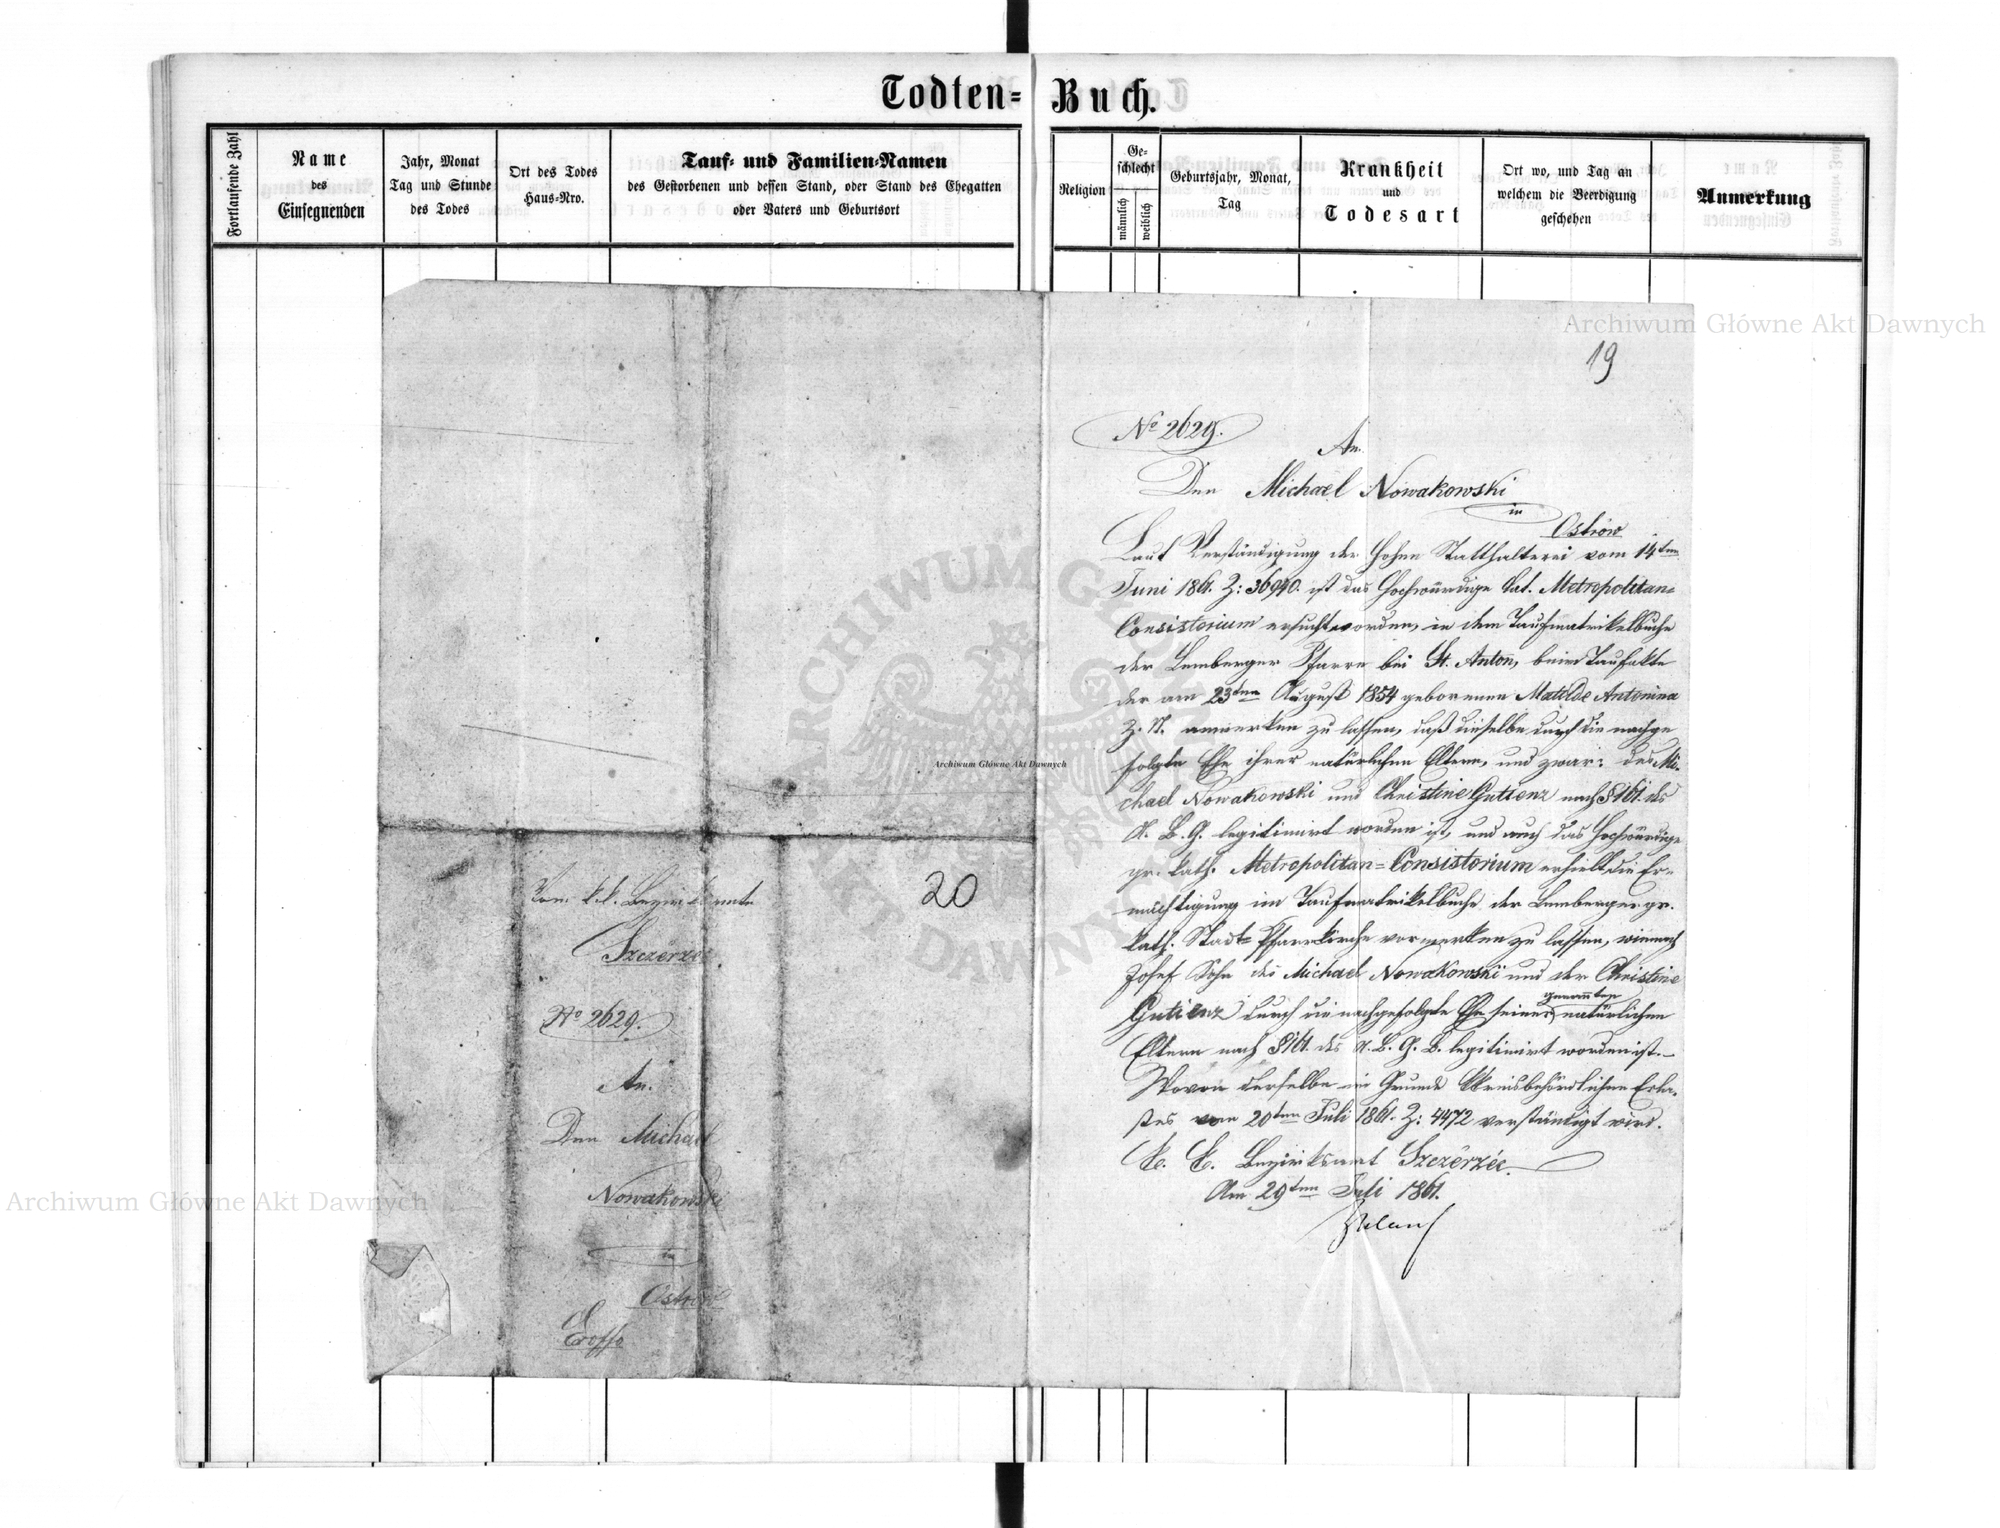 Todten-Buch.
Fortlaufende Zahl
Name
des
Einsegnenden
Jahr, Monat
Tag und Stunde
des Todes
Ort des Todes
Haus-Nro.
Tauf- und Familien-Namen
des Gestorbenen und dessen Stand, oder Stand des Ehegatten
oder Vaters und Geburtsort
Religion
Ge-
schlecht
männlich
weiblich
Geburtsjahr, Monat,
Tag
Krankheit
und
Todesart
Ort wo, und Tag an
welchem die Beerdigung
geschehen
Anmerkung
Vom k.k. Bezirksamte
Szczérzéc
No 2629.
An.
Den Michael
Nowakowski
in
Ostrów
20
19
No 2629.
An.
Den Michael Nowakowski
in
Ostrów
Laut Verständigung der hohen Statthalterei vom 14ten
Juni 1861. Z: 36940. ist das Hochwürdige lat. Metropolitan-
Consistorium ersucht worden, in dem Taufmatrikelbuche
der Lemberger Pfarre bei St. Anton, beim Taufakte
der am 23ten August 1854 geborenen Matilde Antonina
Z. N. anmerken zu lassen, daß dieselbe durch die nachge
folgte Ehe ihrer natürlichen Eltern, und zwar: des Mi-
chael Nowakowski und Christine Guttenz nach § 161. des
A. B. G. legitimirt worden ist, und auch das Hochwürdige
gr. kath. Metropolitan=Consistorium erhielt die Er-
mächtigung im Taufmatrikelbuche der Lemberger gr.
kath. Stadt Pfarrkirche vormerken zu lassen, wienach
Josef Sohn des Michael Nowakowski und der Christine
Gutienz durch die nachgefolgte Ehe seiner genannten natürlichen
Eltern nach § 161. des A. B. G. B. legitimirt worden ist.-
Wovon derselbe im Grunde Kreisbehördlichen Erla-
ßes vom 20ten Juli 1861. Z: 4472 verständigt wird.
K. K. Bezirksamt Szczérzéc
Am 29ten Juli 1861.
Archiwum Główne Akt Dawnych
Archiwum Główne Akt Dawnych
Archiwum Główne Akt Dawnych
ARCHIWUM GŁÓWNE AKT DAWNYCH